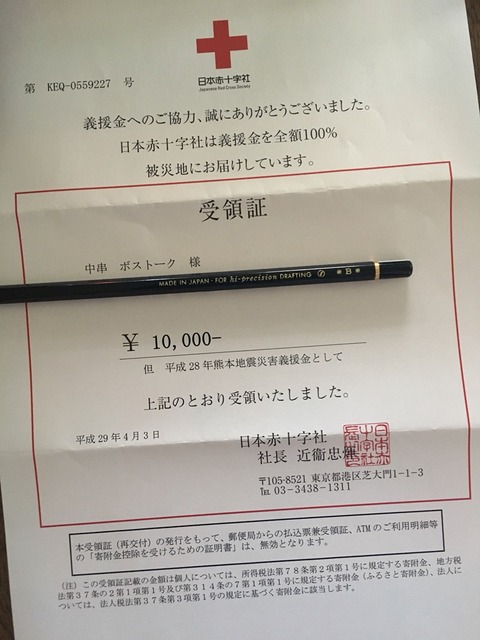 日本赤十字社
Japanese Red Cross Society
第 KEQ-0559227 号
義援金へのご協力、誠にありがとうございました。
日本赤十字社は義援金を全額100%
被災地にお届けしています。
受領証
中串 ボストーク 様
MADE IN JAPAN・FOR hi-precision DRAFTING B
¥ 10,000-
但 平成28年熊本地震災害義援金として
上記のとおり受領いたしました。
平成29年4月3日
日本赤十字社
社長 近衞忠煇
日本赤十字社長之印
〒105-8521 東京都港区芝大門1-1-3
℡ 03-3438-1311
本受領証(再交付)の発行をもって、郵便局からの払込票兼受領証、ATMのご利用明細等
の「寄附金控除を受けるための証明書」は、無効となります。
(注)この受領証記載の金額は個人については、所得税法第78条第2項第1号に規定する寄附金、地方税
法第37条の2第1項第1号及び第314条の7第1項第1号に規定する寄附金(ふるさと寄附金)、法人に
ついては、法人税法第37条第3項第1号の規定に基づく寄附金に該当します。